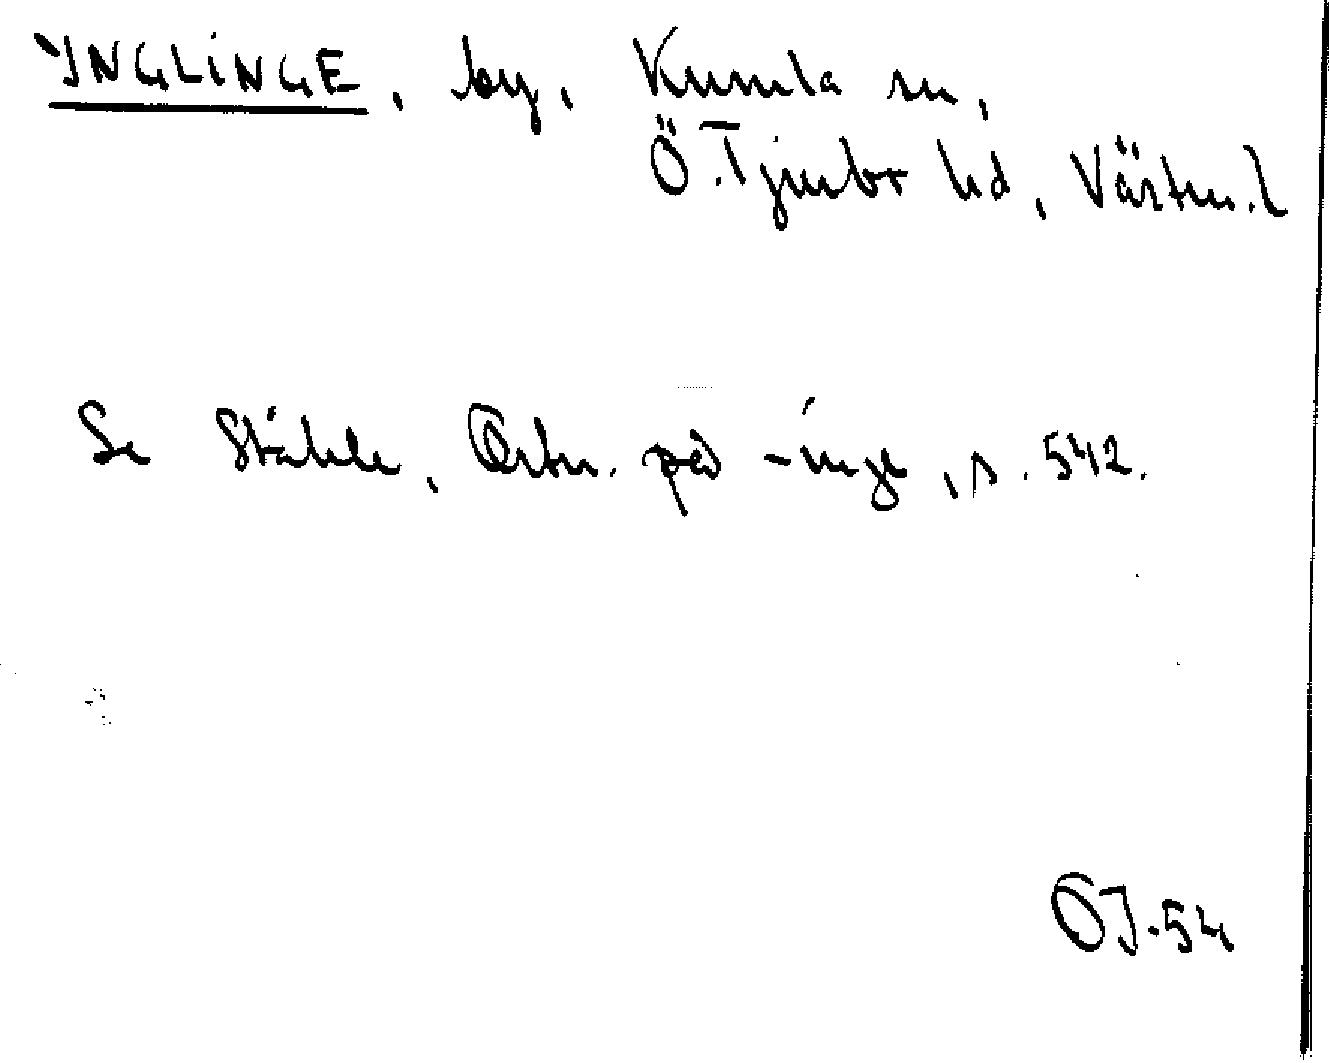 YNGLINGE, by, Kumla sn,
Ö. Tjurbo hd, Västm. l
Se Ståhle, Ortn. på -inge, s. 542.
OJ.54